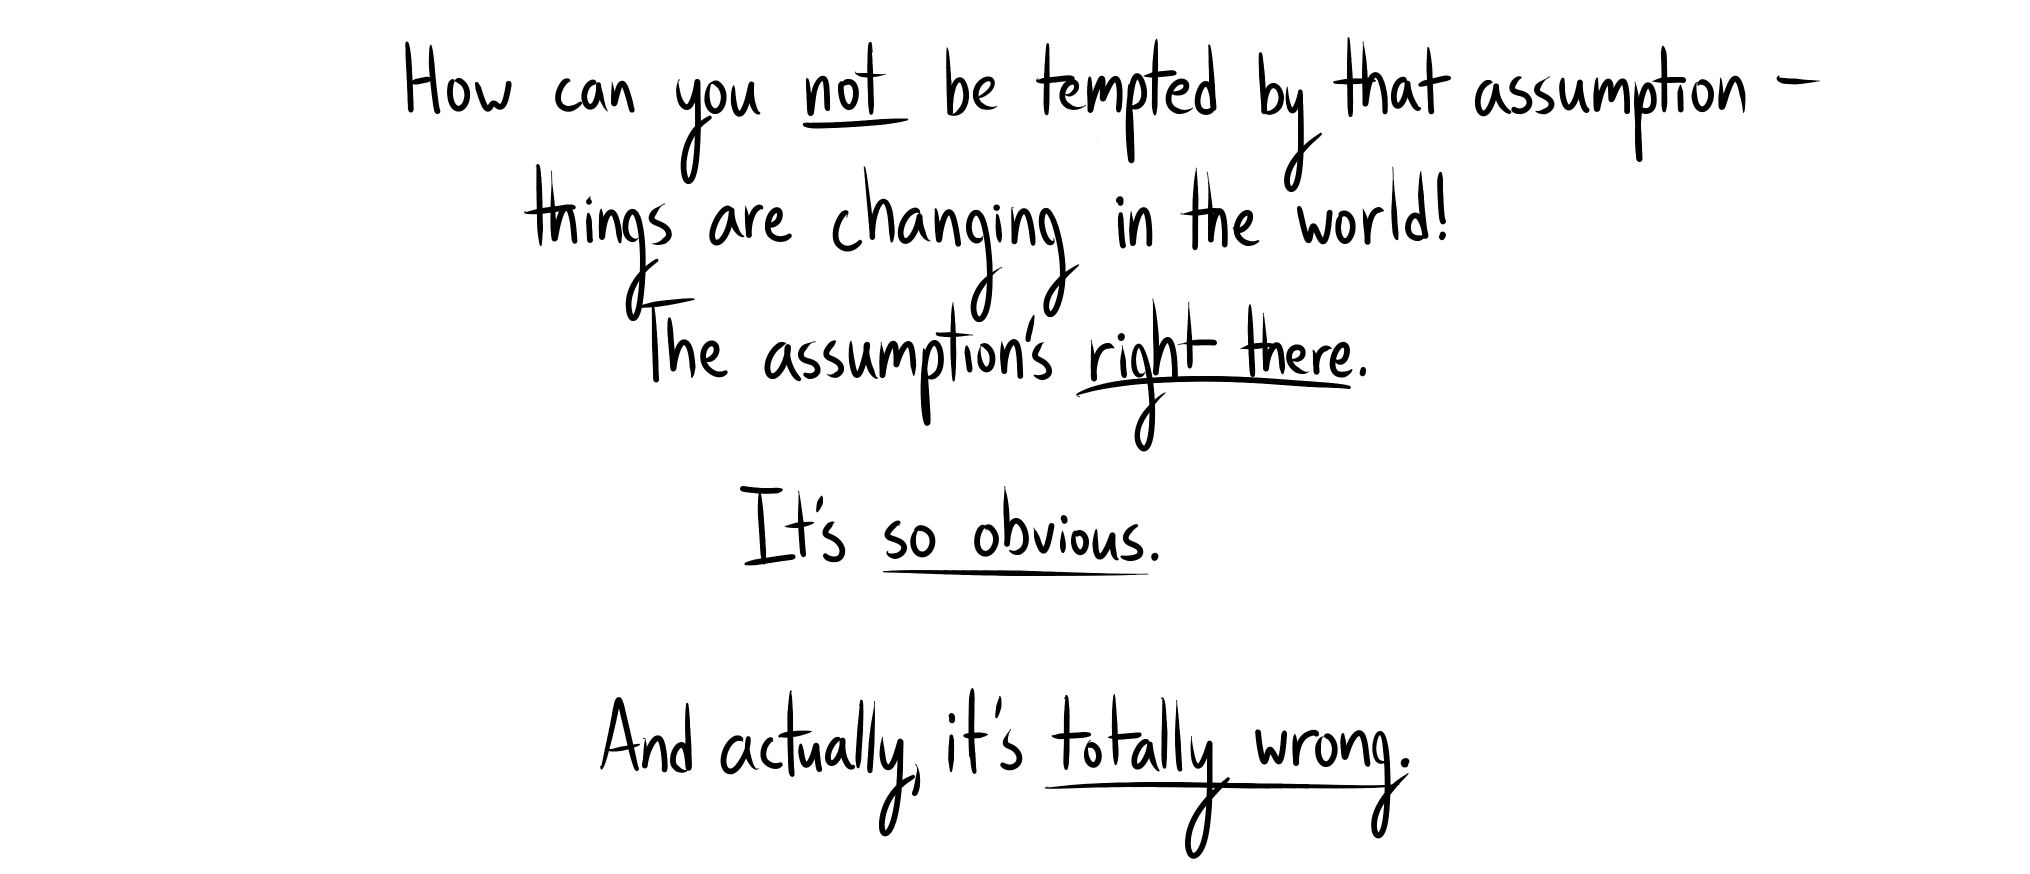 How can you not be tempted by that assumption -
things are changing in the world!
The assumption's right there.
It's so obvious.
And actually, it's totally wrong.